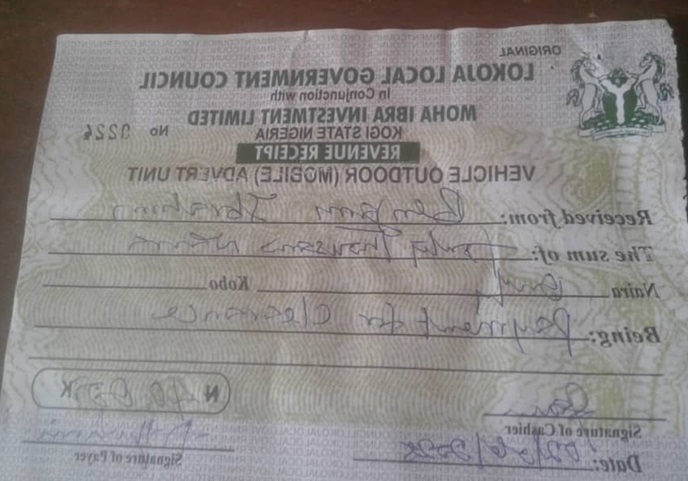 ORIGINAL
LOKOJA LOCAL GOVERNMENT COUNCIL
In Conjunction with
MOHA IBRA INVESTMENT LIMITED
KOGI STATE NIGERIA
No 9224
REVENUE RECEIPT
VEHICLE OUTDOOR (MOBILE) ADVERT UNIT
Received from: Ibrahim
The sum of: Thousand Naira
Naira only Kobo
Being: Payment for Clearance
N
Signature of Cashier
Signature of Payer
Date: